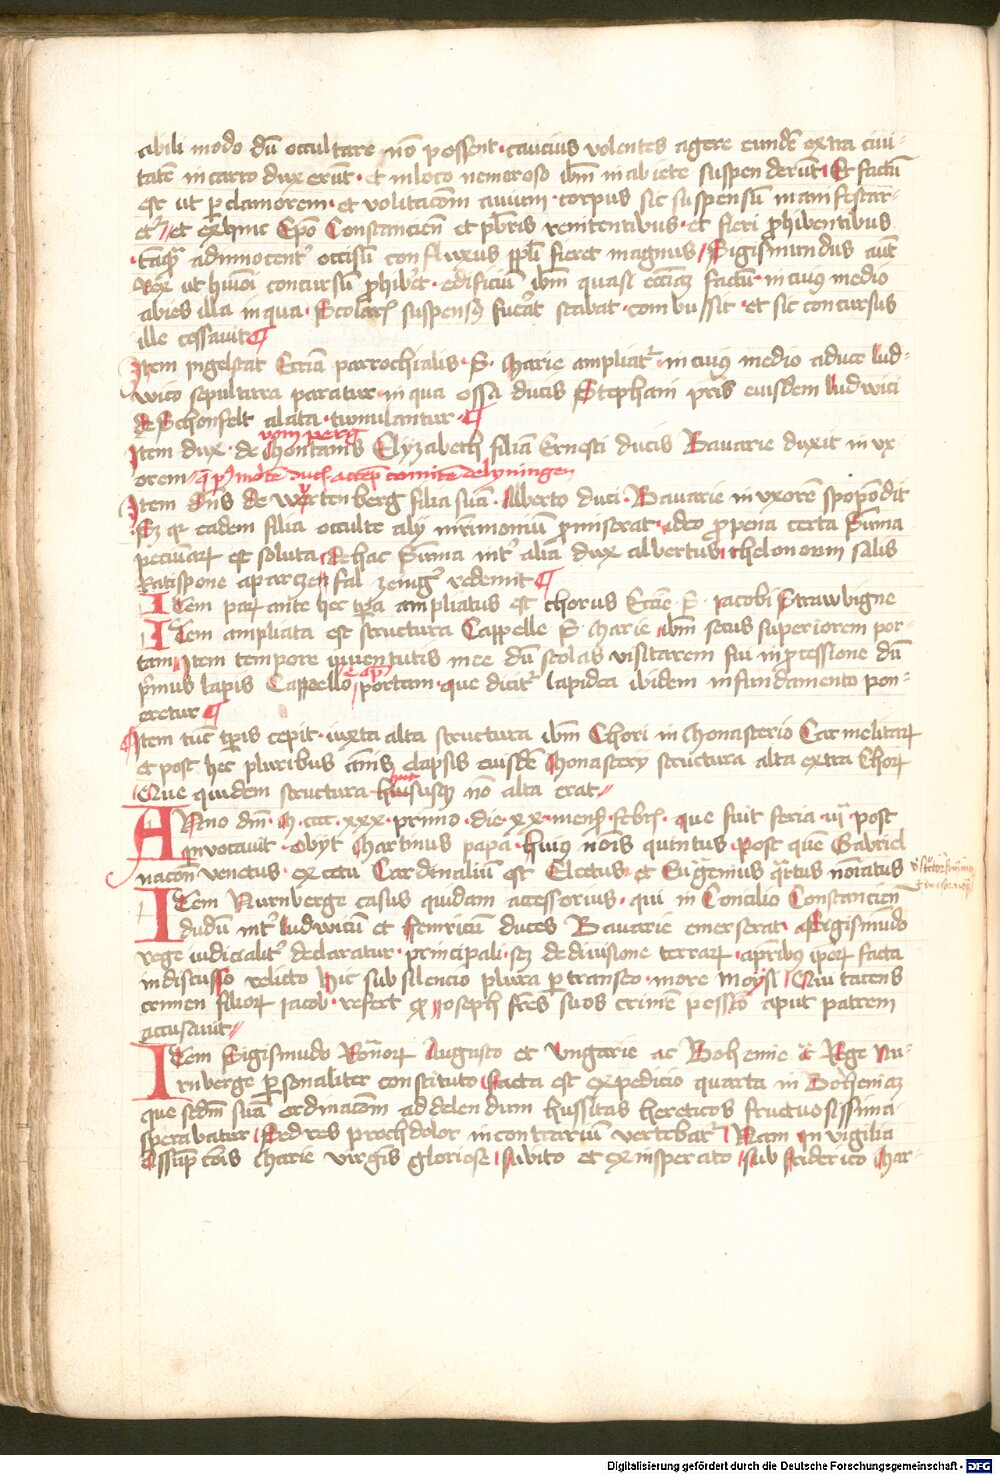 abili modo dū occultare nō possent · caucius volentes agere eundē extra ciui-
tatē in carro duxerūt · et in loco nemoroso ibm̄ in abiete suspenderūt Et factū
est ut p clamorem · et volitacōm auium · corpus sic suspensū manifestar-
et' // et exhinc Ep̄o Constancien̄ et pb̄ris renitentibus · et fieri prohibentibus
tāq̄ ad innocent' occisū confluxus ppl̄i fieret magnus / Sigismundus aūt
Rex ut hm̄oi concursū prohib'et · edificiū ibm̄ quasi eccām factū · in cui9 medio
abies illa in qua · Scolaris suspens9 fuerat stabat · combussit · et sic concursus
ille cessauit
Item Ingelstat Eccīa parrochialis · S · Marie ampliat' · in cui9 medio a duce Lud-
wico sepultura paratur · in qua ossa ducis Stephani pr̄is eiusdem Ludwici
de Schonfelt alata · tumulantur
vom perg
Item dux · de Montanis Elyzabeth filiā Ernesti ducis Bauarie duxit in vx
orem / q̄ p9 mortē duc' accep̄ comitē de lyningen
Item dn̄s de Wirtenberg filiā suā · Alberto duci · Bauarie in vxorē spopōdit
Sz qr eadem filia occulte alij mr̄imoniū promiserat · ideo pro pena certa Sūma
pecuniar est soluta de hac Sūma int' alia dux albertus thelonorum salis
Ratispone a parczen fal zenig' redemit
Item par ante hec tp̄a ampliatus est chorus Eccīe S · Jacobi Strawbigne
Item ampliata est structura Cappelle S · Marie ibm̄ secus superiorem por-
tam Item tempore iuuentutis mee dū scolas visitarem fui in processione dū
p̄mus lapis Cappelle portam · que dicit' lapidea ibidem in fundamento pon-
eretur
Item tūc tp̄is cepit · iuxta alta structura ibm̄ Chori in Monasterio Carmelitar
Et post hec pluribus ānis elapsis eiusdē Monasterij structura alta extra Chorū
Que quidem structura hucusq3 nō alta erat //
Anno dm̄ · M · cccc · xxx · primo · die · xx · mens' · feb̄r · que fuit feria · iij · post
Inuocauit · Obijt Martinus papa · huius nōis quintus · Post quē Gabriel
nacōe venetus · ex cetu Cardinaliū est Electus · et Eugenius q̄rtus nōiatus
Item Nurnberge casus quidam accessorius · qui in Concilio Constancien̄
dudū int' Ludwicū et Henricū duces Bauarie emerserat a Sigismūdo
rege iudicialit' declaratur · principali · scz de diuisione terrar · a pr̄ibus ipor̄ facta
indiscusso relicto Hic sub silencio plura ptranseo · more Moysi / Qui tacens
crimen filior̄ Jacob · refert q Joseph fr̄es suos crimīe pessīo aput patrem
accusauit //
Item Sigismūdo Rōnor̄ Augusto et Vngarie ac Bohemie et Rege Nu-
rnberge psonaliter constituto facta est expedicio quarta in Bohemiaz
que scdm̄ suā ordinacōm ad delendum hussitas hereticos fructuosissima
sperabatur / Sed res proch dolor in contrariū vertebat' / Nam in vigilia
Assūpcōis Marie virgīs gloriose / subito et ex insperato / sub Friderico Mar-